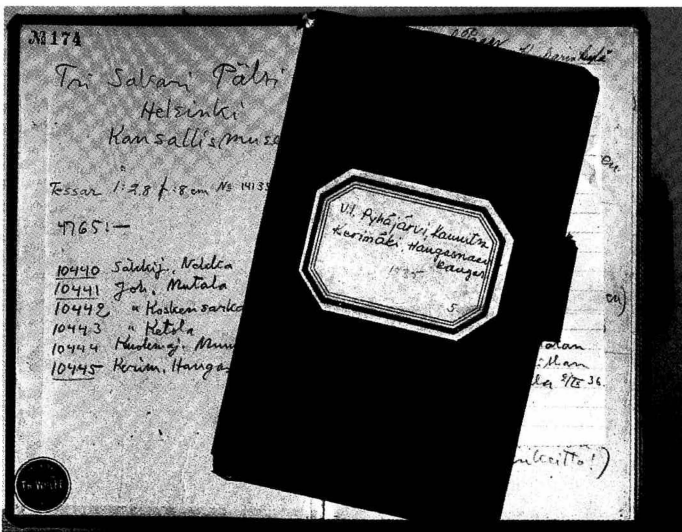 № 174
Tri Sakari Pälsi
Helsinki
Kansallismuse
Tessar 1:2,8 f:8 cm № 14133
4765:—
10440 Säkkij., Nokka
10441 Joh., Mutala
10442 " Koskensarka
10443 " Ketola
10444 Muu
10445 Kerim., Hangas
V.l. Pyhäjärvi, Kaunits
Kerimäki, Hangasmaen
kangas
1935
5.
en
en)
dan
illan
la 5/IX 36.
nkeitto!)